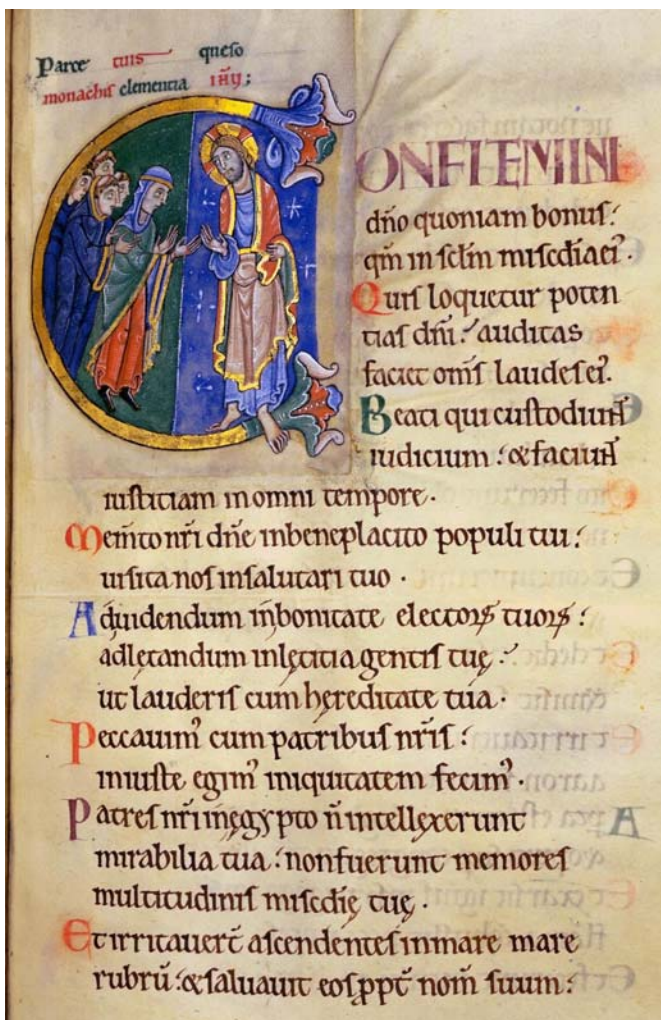 Parce tuis queso
monachis clementia ihu̅;
CONFITEMINI
dn̅o quoniam bonus:
qm̅ in sclm̅ misedia ei᾽.
Quis loquetur poten
tias dn̅i: auditas
faciet om̅s laudes ei᾽.
Beati qui custodiunt
iudicium: & faciunt
iusticiam in omni tempore.
Mem̅to nr̅i dn̅e in beneplacito populi tui:
uisita nos in salutari tuo.
Ad uidendum in bonitate electorꝝ tuorꝝ:
ad lęcandum in lęticia gentis tuę:
ut lauderis cum hereditate tua.
Peccauim᾽ cum patribus nr̅is:
iniuste egim᾽ iniquitatem fecim᾽.
Patres nr̅i in ęgypto n̅ intellexerunt
mirabilia tua: non fuerunt memores
multitudinis misedię tuę.
Et irritauert̅ ascendentes in mare mare
rubru̅: & saluauit eos ꝓpt̅ nom̅ suum: